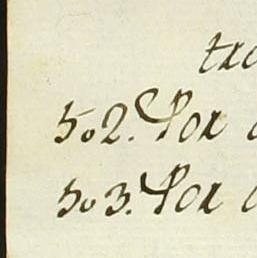 502. Por
503. Por